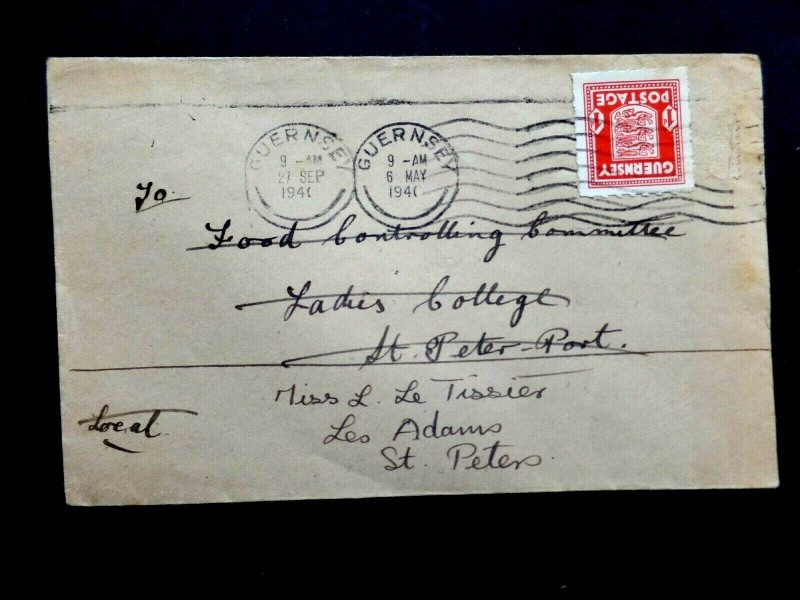 GUERNSEY
9 - AM
27 SEP
194(
GUERNSEY
9 - AM
6 MAY
194(
GUERNSEY
1D 1D
POSTAGE
To
Food Controlling Committee
Ladies College
St. Peter-Port.
Miss L. Le Tissier
Les Adams
St. Peters.
Local